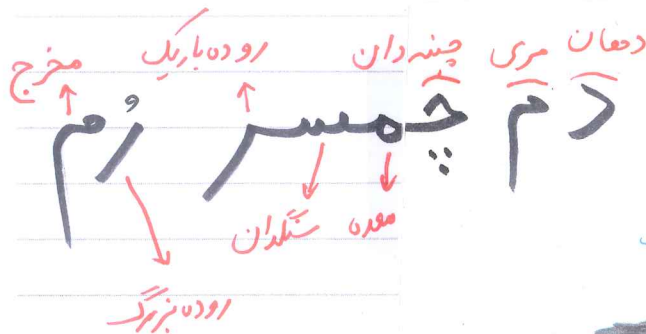 دهان مری چینه دان روده باریک مخرج
دم چمسر رُم
معده سنگدان
روده بزرگ